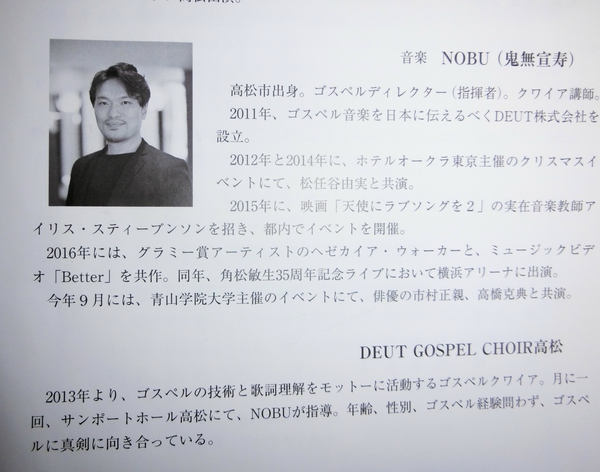 音楽 NOBU(鬼無宣寿)
高松市出身。ゴスペルディレクター(指揮者)。クワイア講師。
2011年、ゴスペル音楽を日本に伝えるべくDEUT株式会社を
設立。
2012年と2014年に、ホテルオークラ東京主催のクリスマスイ
ベントにて、松任谷由実と共演。
2015年に、映画「天使にラブソングを2」の実在音楽教師ア
イリス・スティーブンソンを招き、都内でイベントを開催。
2016年には、グラミー賞アーティストのヘゼカイア・ウォーカーと、ミュージックビデ
オ「Better」を共作。同年、角松敏生35周年記念ライブにおいて横浜アリーナに出演。
今年9月には、青山学院大学主催のイベントにて、俳優の市村正親、高橋克典と共演。
DEUT GOSPEL CHOIR高松
2013年より、ゴスペルの技術と歌詞理解をモットーに活動するゴスペルクワイア。月に一
回、サンポートホール高松にて、NOBUが指導。年齢、性別、ゴスペル経験問わず、ゴスペ
ルに真剣に向き合っている。